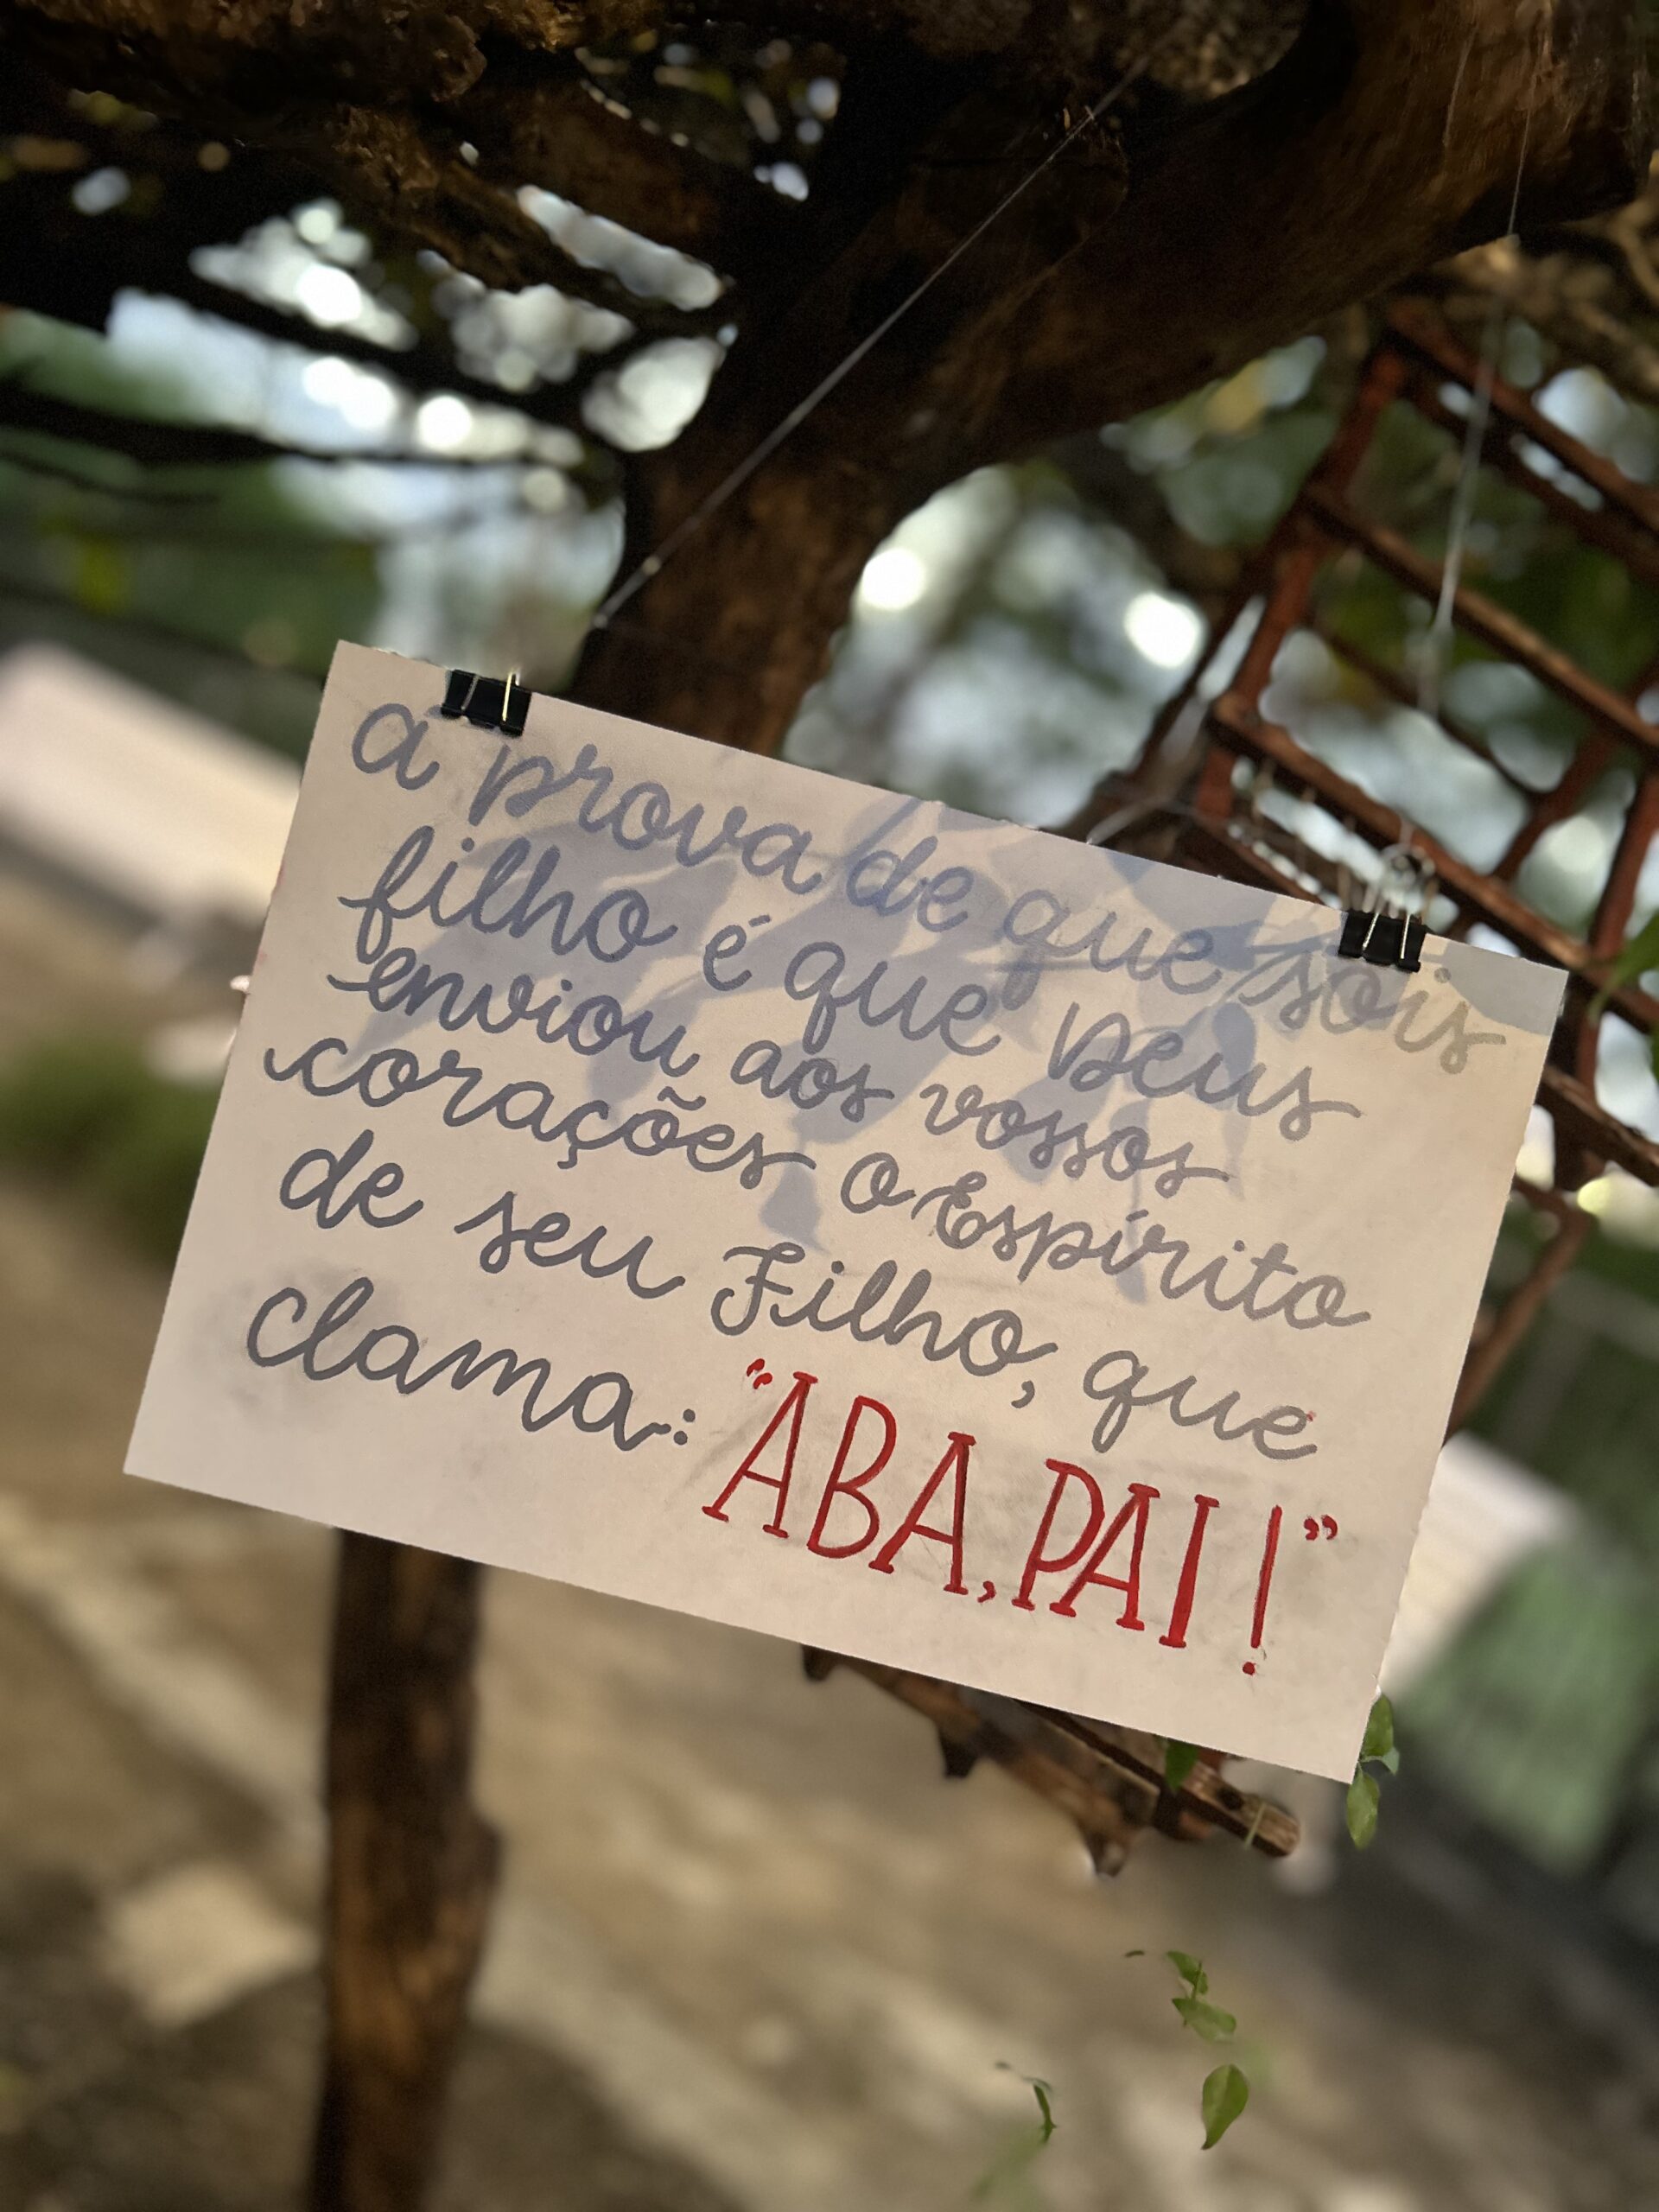 a prova de que sois
filho é que Deus
enviou aos vossos
corações o Espírito
de seu Filho, que
clama: "ABA, PAI!"